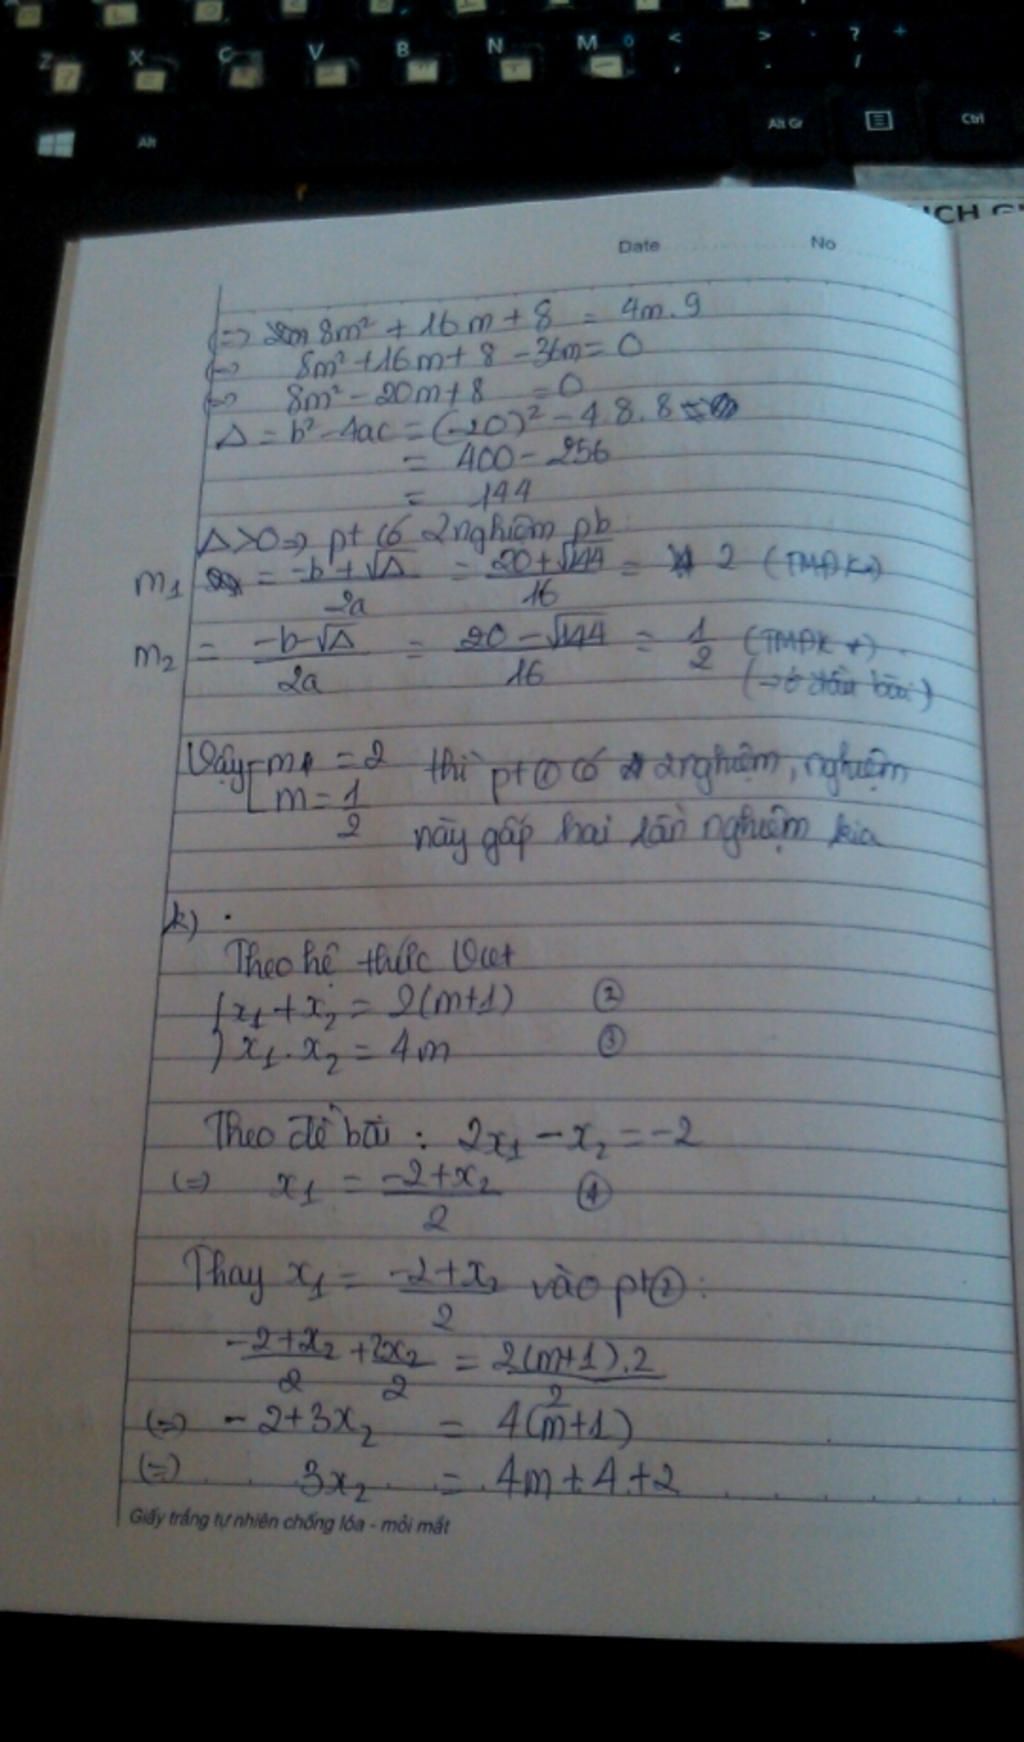 Z X C V B N M < > ?
, . /
Alt Alt Gr Ctrl
ICH G
Date No
<=> 8m² + 16m + 8 = 4m.9
<=> 8m² + 16m + 8 - 36m = 0
<=> 8m² - 20m + 8 = 0
Δ = b² - 4ac = (-20)² - 4.8.8
= 400 - 256
= 144
Δ > 0 => pt có 2 nghiệm pb
m₁ = (-b + √Δ)/2a = (20 + √144)/16 = 2 (TMĐK*)
m₂ = (-b - √Δ)/2a = (20 - √144)/16 = 1/2 (TMĐK *)
(-> ở đầu bài)
Vậy [ m = 2 thì pt ① có 2 nghiệm, nghiệm
m = 1/2 này gấp hai lần nghiệm kia
k)
Theo hệ thức Viet
{ x₁ + x₂ = 2(m+1) ②
x₁ . x₂ = 4m ③
Theo đề bài : 2x₁ - x₂ = -2
<=> x₁ = (-2 + x₂)/2 ④
Thay x₁ = (-2 + x₂)/2 vào pt ② :
(-2 + x₂)/2 + 2x₂/2 = 2(m+1).2/2
<=> -2 + 3x₂ = 4(m+1)
<=> 3x₂ = 4m + 4 + 2
Giấy trắng tự nhiên chống lóa - mỏi mắt